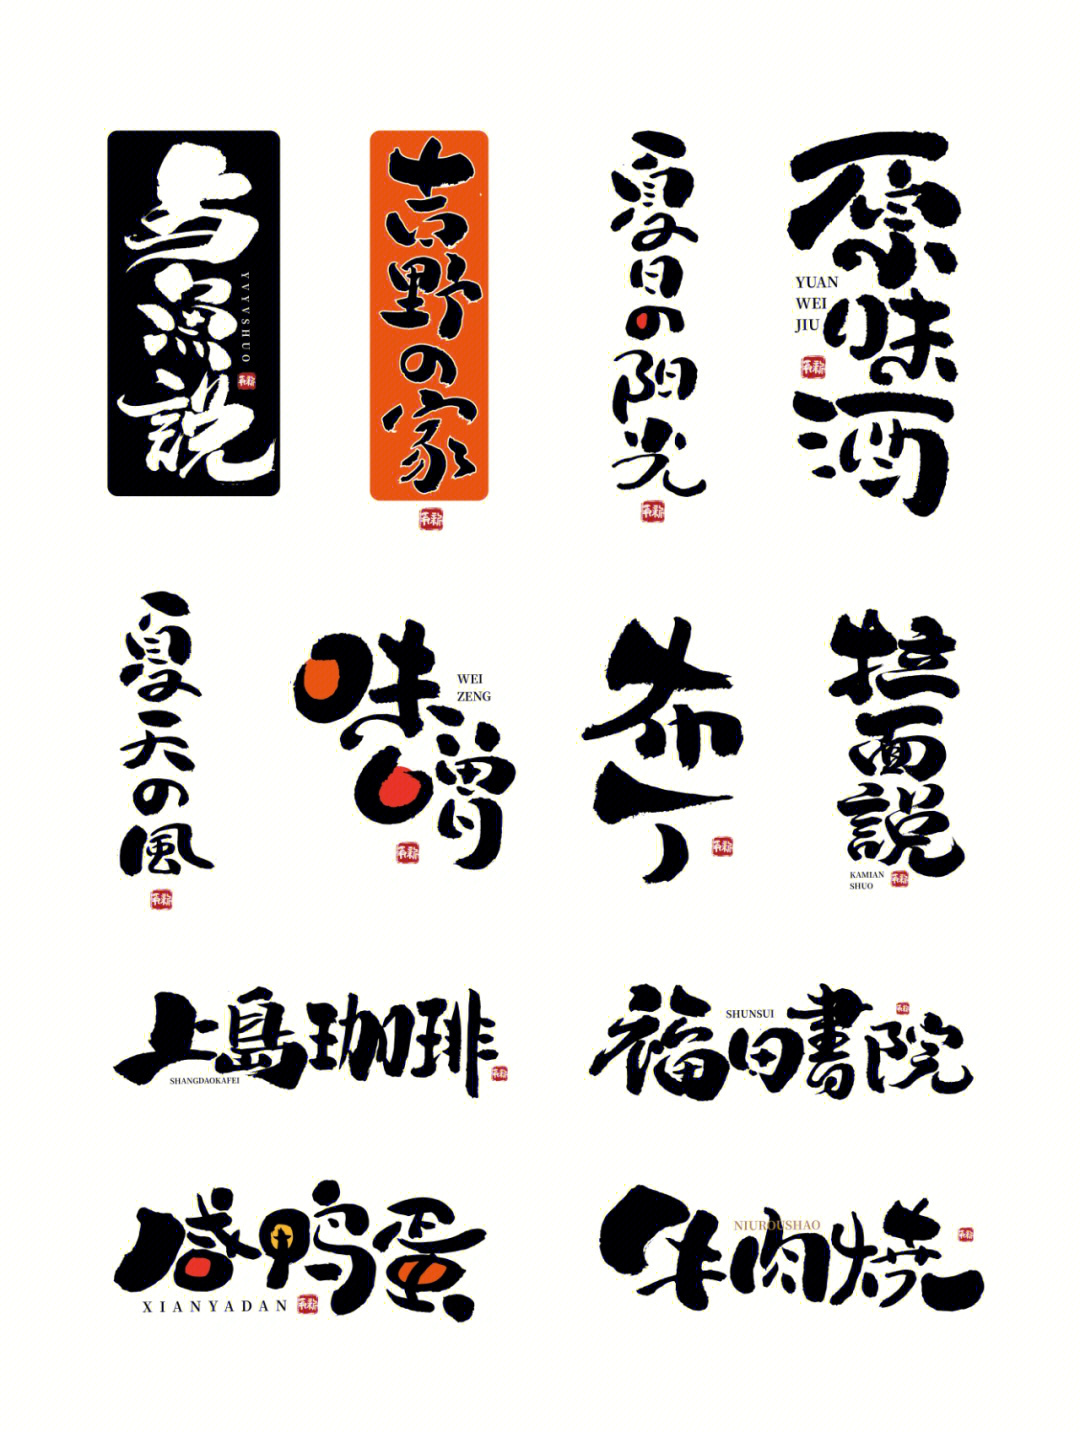 与渔説
YVYVSHUO
吉野の家
夏日の阳光
原味酒
YUAN
WEI
JIU
夏天の風
味噌
WEI
ZENG
布丁
拉面説
KAMIAN
SHUO
上島珈琲
SHANGDAOKAFEI
福田書院
SHUNSUI
咸鸭蛋
XIANYADAN
牛肉烧
NIUROUSHAO